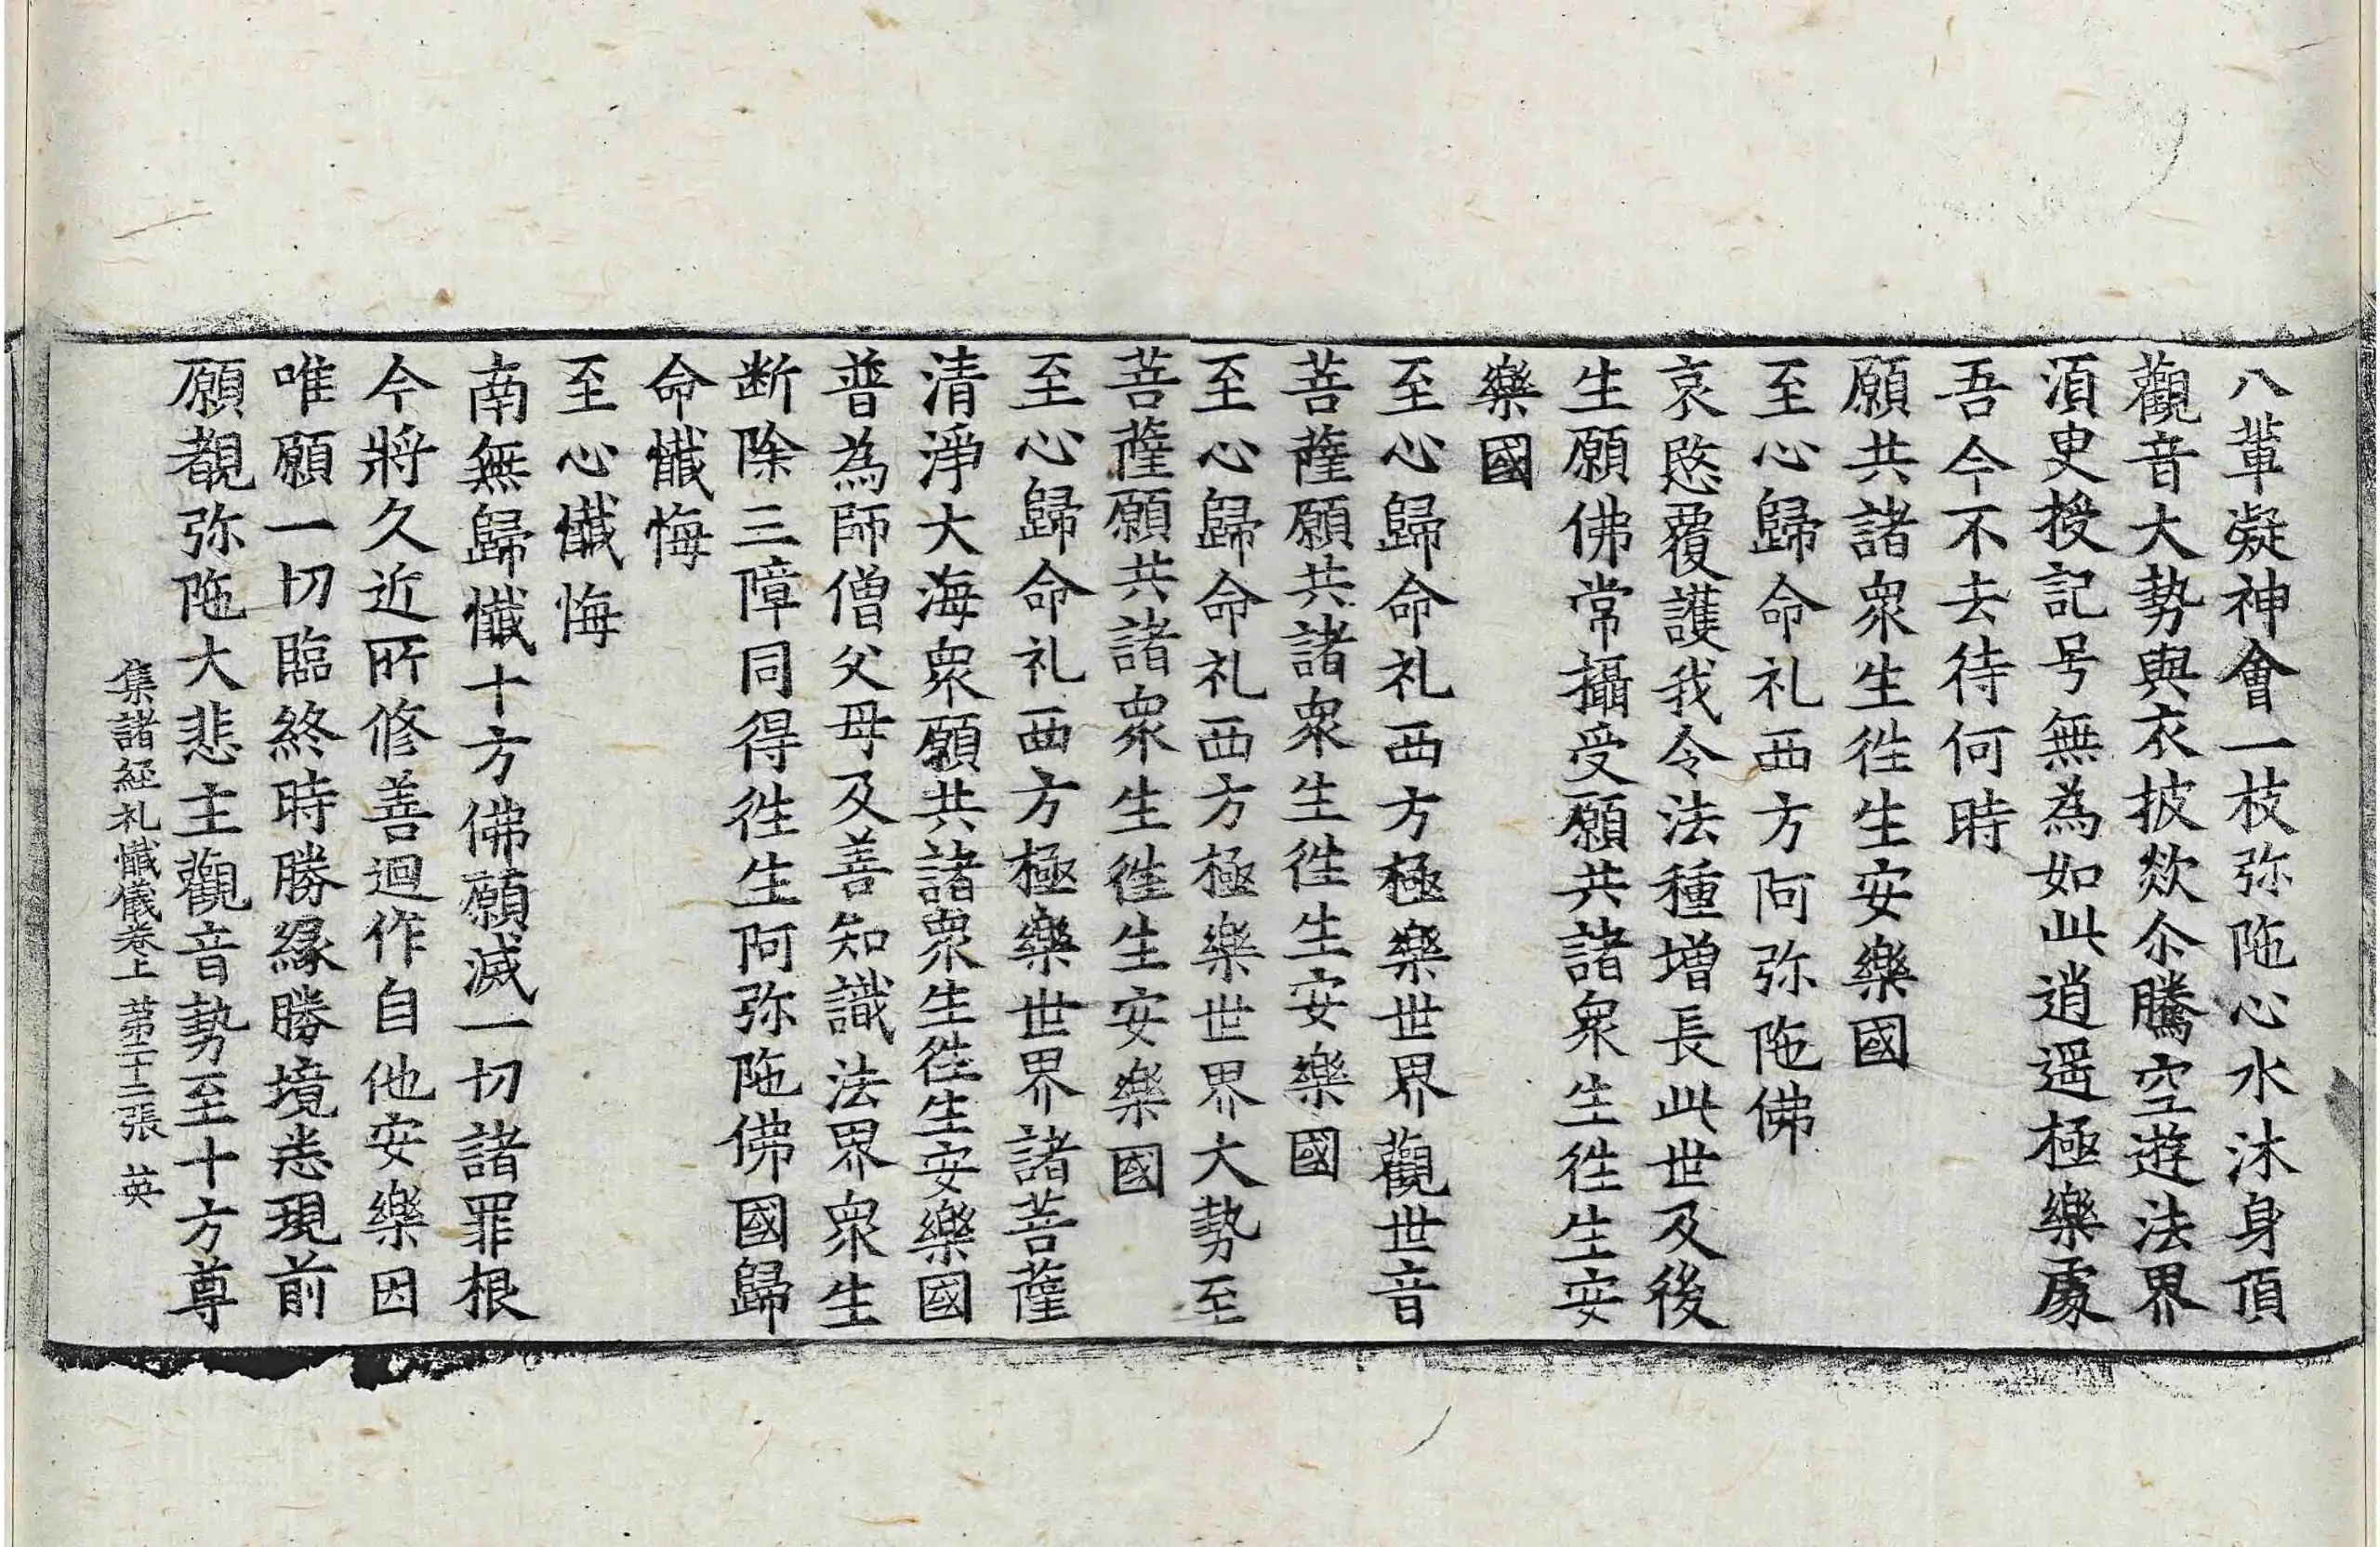 八輩凝神會一枝弥陁心水沐身頂
觀音大勢與衣披欻尒騰空遊法界
須臾授記号無為如此逍遥極樂處
吾今不去待何時
願共諸衆生徃生安樂國
至心歸命礼西方阿弥陁佛
哀愍覆護我令法種增長此世及後
生願佛常攝受願共諸衆生徃生安
樂國
至心歸命礼西方極樂世界觀世音
菩薩願共諸衆生徃生安樂國
至心歸命礼西方極樂世界大勢至
菩薩願共諸衆生徃生安樂國
至心歸命礼西方極樂世界諸菩薩
清淨大海衆願共諸衆生徃生安樂國
普為師僧父母及善知識法界衆生
断除三障同得徃生阿弥陁佛國歸
命懺悔
至心懺悔
南無歸懺十方佛願滅一切諸罪根
今將久近所修善迴作自他安樂因
唯願一切臨終時勝緣勝境悉現前
願覩弥陁大悲主觀音勢至十方尊
集諸經礼懺儀卷上 苐二十二張 英